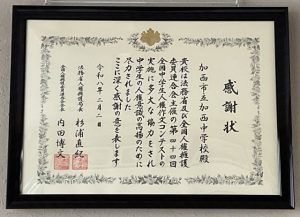 感謝状
加西市立加西中学校殿
貴校は法務省及び全国人権擁護
委員連合会主催の第四十四回
全国中学生人権作文コンテストの
実施に多大な協力をされ
中学生の人権意識の高揚のために
尽力されました
ここに深く感謝の意を表します
令和八年二月二日
法務省人権擁護局長 杉浦直紀
全国人権擁護委員連合会会長 内田博文